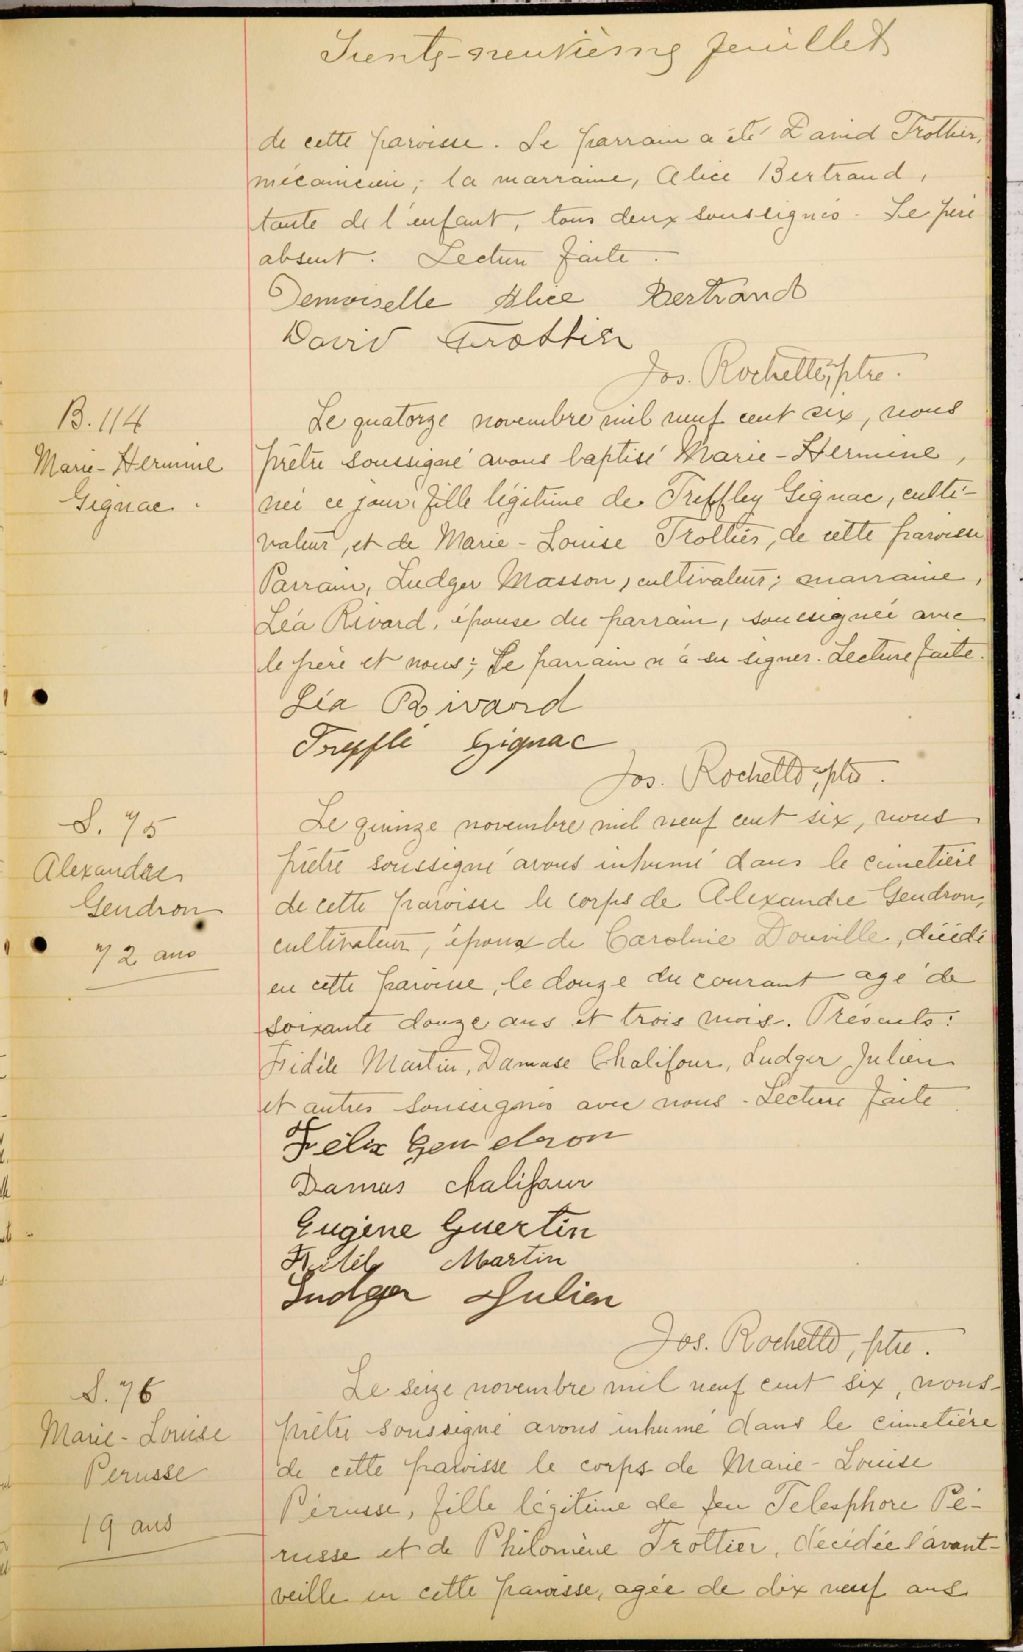 Trente-neuvième feuillet
de cette paroisse. Le parrain a été David Trottier,
mécanicien; la marraine, Alice Bertrand,
tante de l'enfant, tous deux soussignés. Le père
absent. Lecture faite.
Demoiselle Alice Bertrand
David Trottier
Jos. Rochette, ptre.
B. 114
Marie-Hermine
Gignac.
Le quatorze novembre mil neuf cent six, nous
prêtre soussigné avons baptisé Marie-Hermine,
née ce jour, fille légitime de Treffley Gignac, culti-
vateur, et de Marie-Louise Trottier, de cette paroisse
Parrain, Ludger Masson, cultivateur; marraine,
Léa Rivard, épouse du parrain, soussignée avec
le père et nous; Le parrain n'a su signer. Lecture faite.
Léa Rivard
Trefflé Gignac
Jos. Rochette, ptre.
S. 75
Alexandre
Gendron
72 ans
Le quinze novembre mil neuf cent six, nous
prêtre soussigné avons inhumé dans le cimetière
de cette paroisse le corps de Alexandre Gendron,
cultivateur, époux de Caroline Douville, décédé
en cette paroisse, le douze du courant agé de
soixante douze ans et trois mois. Présents:
Fidèle Martin, Damase Chalifour, Ludger Julien
et autres soussignés avec nous. Lecture faite
Félix Gendron
Damas Chalifour
Eugène Guertin
Fidèl Martin
Ludger Julien
Jos. Rochette, ptre.
S. 76
Marie-Louise
Perusse
19 ans
Le seize novembre mil neuf cent six, nous
prêtre soussigné avons inhumé dans le cimetière
de cette paroisse le corps de Marie-Louise
Pérusse, fille légitime de feu Telesphore Pé-
russe et de Philomène Trottier, décédée l'avant-
veille en cette paroisse, agée de dix neuf ans